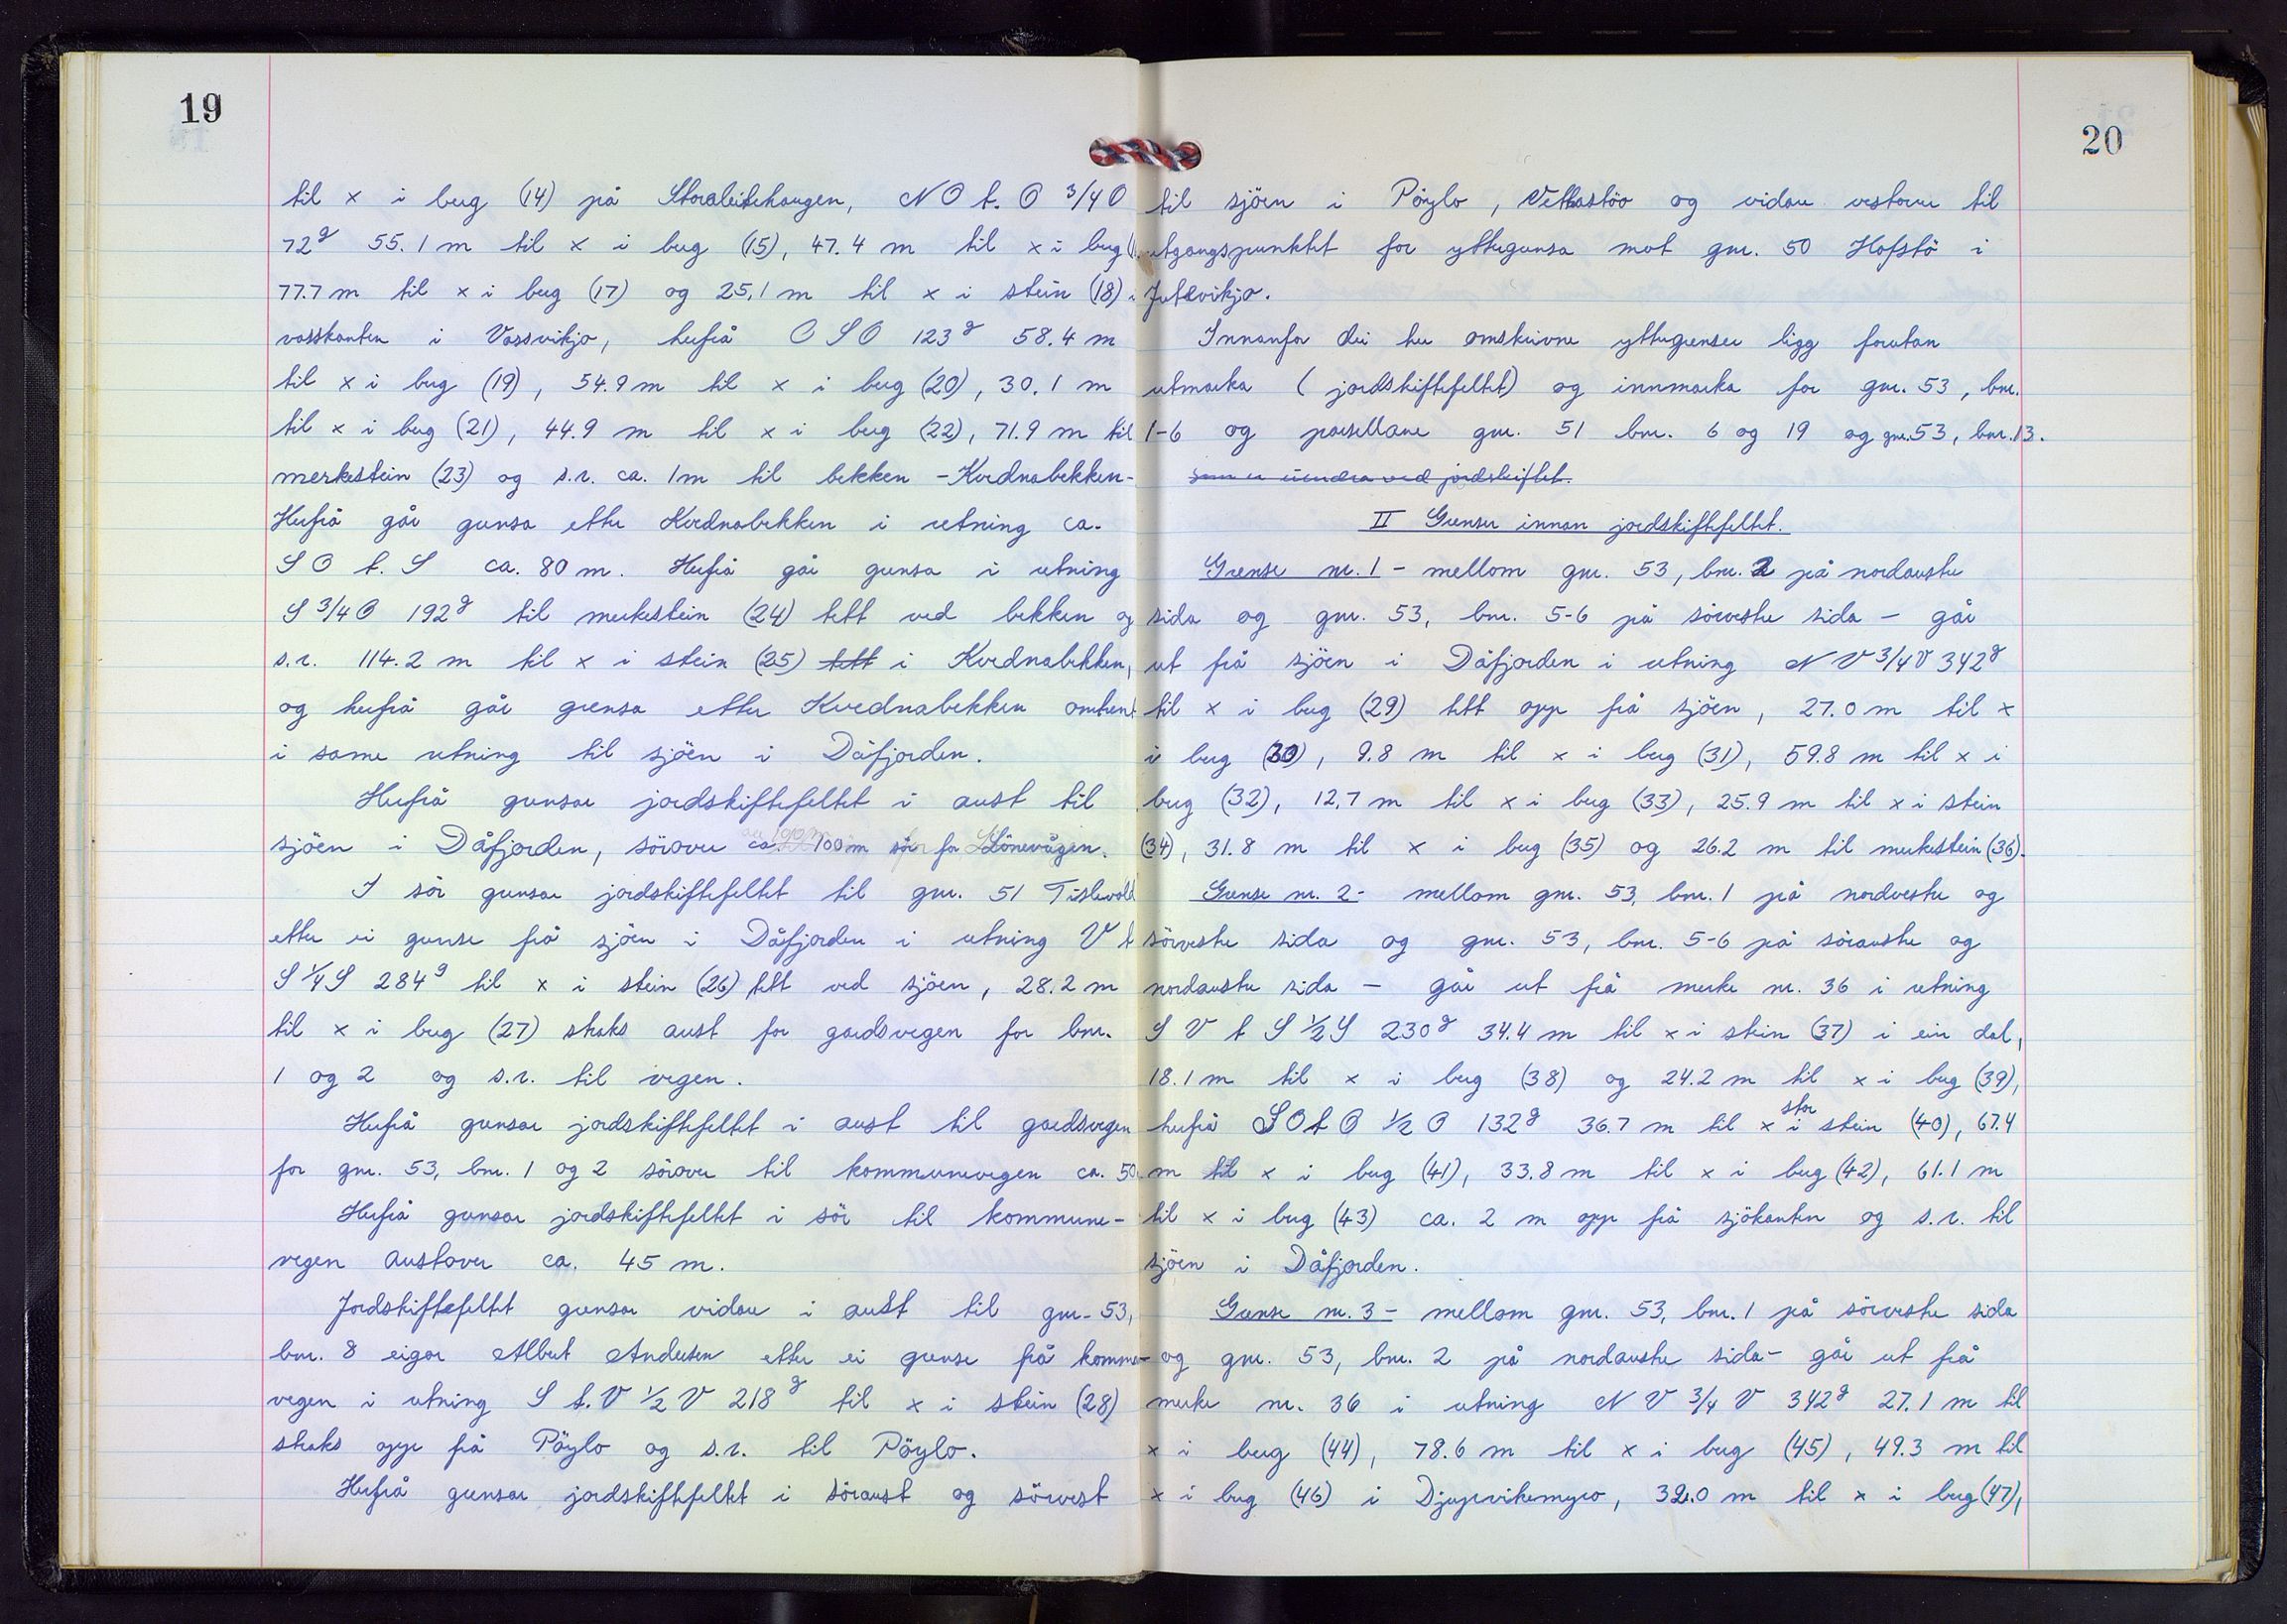 19
til x i berg (14) på Storaleitehaugen, N O t. O 3/4 O
72g 55.1 m til x i berg (15), 47.4 m til x i berg
77.7 m til x i berg (17) og 25,1 m til x i stein (18) i
vasskanten i Vassvikja, herfrå O S O 123g 58.4 m
til x i berg (19), 54.9 m til x i berg (20), 30.1 m
til x i berg (21), 44.9 m til x i berg (22), 71.9 m til
merkestein (23) og s.r. ca. 1m til bekken - Kvednabekken-
Herfrå går grensa etter Kvednabekken i retning ca.
S O t. S ca. 80 m. Herfrå går grensa i retning
S 3/4 O 192g til merkestein (24) tett ved bekken og
s.r. 114.2 m til x i stein (25) tett i Kvednabekken,
og herfrå går grensa etter Kvednabekken omtrent
i same retning til sjöen i Dåfjorden.
Herfrå grensar jordskiftefeltet i aust til
sjöen i Dåfjorden, sörover ca. 100 m sör for Lönevågen.
I sör grensar jordskiftefeltet til gnr. 51 Tislevold
etter ei grense frå sjöen i Dåfjorden i retning V t
S 1/4 S 284g til x i stein (26) tett ved sjöen, 28.2 m
til x i berg (27) straks aust for gardsvegen for bnr.
1 og 2 og s.r. til vegen.
Herfrå grensar jordskiftefeltet i aust til gardsvegen
for gnr. 53, bnr. 1 og 2 sörover til kommunevegen ca. 50
Herfrå grensar jordskiftefeltet i sör til kommune-
vegen austover ca. 45 m.
Jordskiftefeltet grensar vidare i aust til gnr. 53,
bnr. 8 eigar Albert Andersen etter ei grense frå kommune-
vegen i retning S t. V 1/2 V 218g til x i stein (28)
straks opp frå Pöylo og s.r. til Pöylo.
Herfrå grensar jordskiftefeltet i söraust og sörvest
20
til sjöen i Pöylo, Vettastöo og vidare vestover til
utgangspunktet for yttergrensa mot gnr. 50 Hofstö i
Jutevikjo.
Innanfor dei her omskrivne yttergrenser ligg forutan
utmarka (jordskiftefeltet) og innmarka for gnr. 53, bnr.
1-6 og parsellane gnr. 51 bnr. 6 og 19 og gnr. 53, bnr. 13.
som er uendra ved jordskiftet.
II Grenser innan jordskiftefeltet.
Grense nr. 1 - mellom gnr. 53, bnr. 2 på nordaustre
sida og gnr. 53, bnr. 5-6 på sörvestre sida - går
ut frå sjöen i Dåfjorden i retning N V 3/4 V 342g
til x i berg (29) tett opp frå sjöen, 27.0 m til x
i berg (30), 9.8 m til x i berg (31), 59.8 m til x i
berg (32), 12,7 m til x i berg (33), 25.9 m til x i stein
(34), 31.8 m til x i berg (35) og 26.2 m til merkestein (36).
Grense nr. 2 - mellom gnr. 53, bnr. 1 på nordvestre og
sörvestre sida og gnr. 53, bnr. 5-6 på söraustre og
nordaustre sida - går ut frå merke nr. 36 i retning
S V t S 1/2 S 230g 34.4 m til x i stein (37) i ein dal,
18.1 m til x i berg (38) og 24.2 m til x i berg (39),
herfrå S O t O 1/2 O 132g 36.7 m til x i stor stein (40), 67.4
m til x i berg (41), 33.8 m til x i berg (42), 61.1 m
til x i berg (43) ca. 2 m opp frå sjökanten og s.r. til
sjöen i Dåfjorden.
Grense nr. 3 - mellom gnr. 53, bnr. 1 på sörvestre sida
og gnr. 53, bnr. 2 på nordaustre sida - går ut frå
merke nr. 36 i retning N V 3/4 V 342g 27.1 m til
x i berg (44), 78.6 m til x i berg (45), 49.3 m til
x i berg (46) i Djupevikemyro, 32.0 m til x i berg (47),